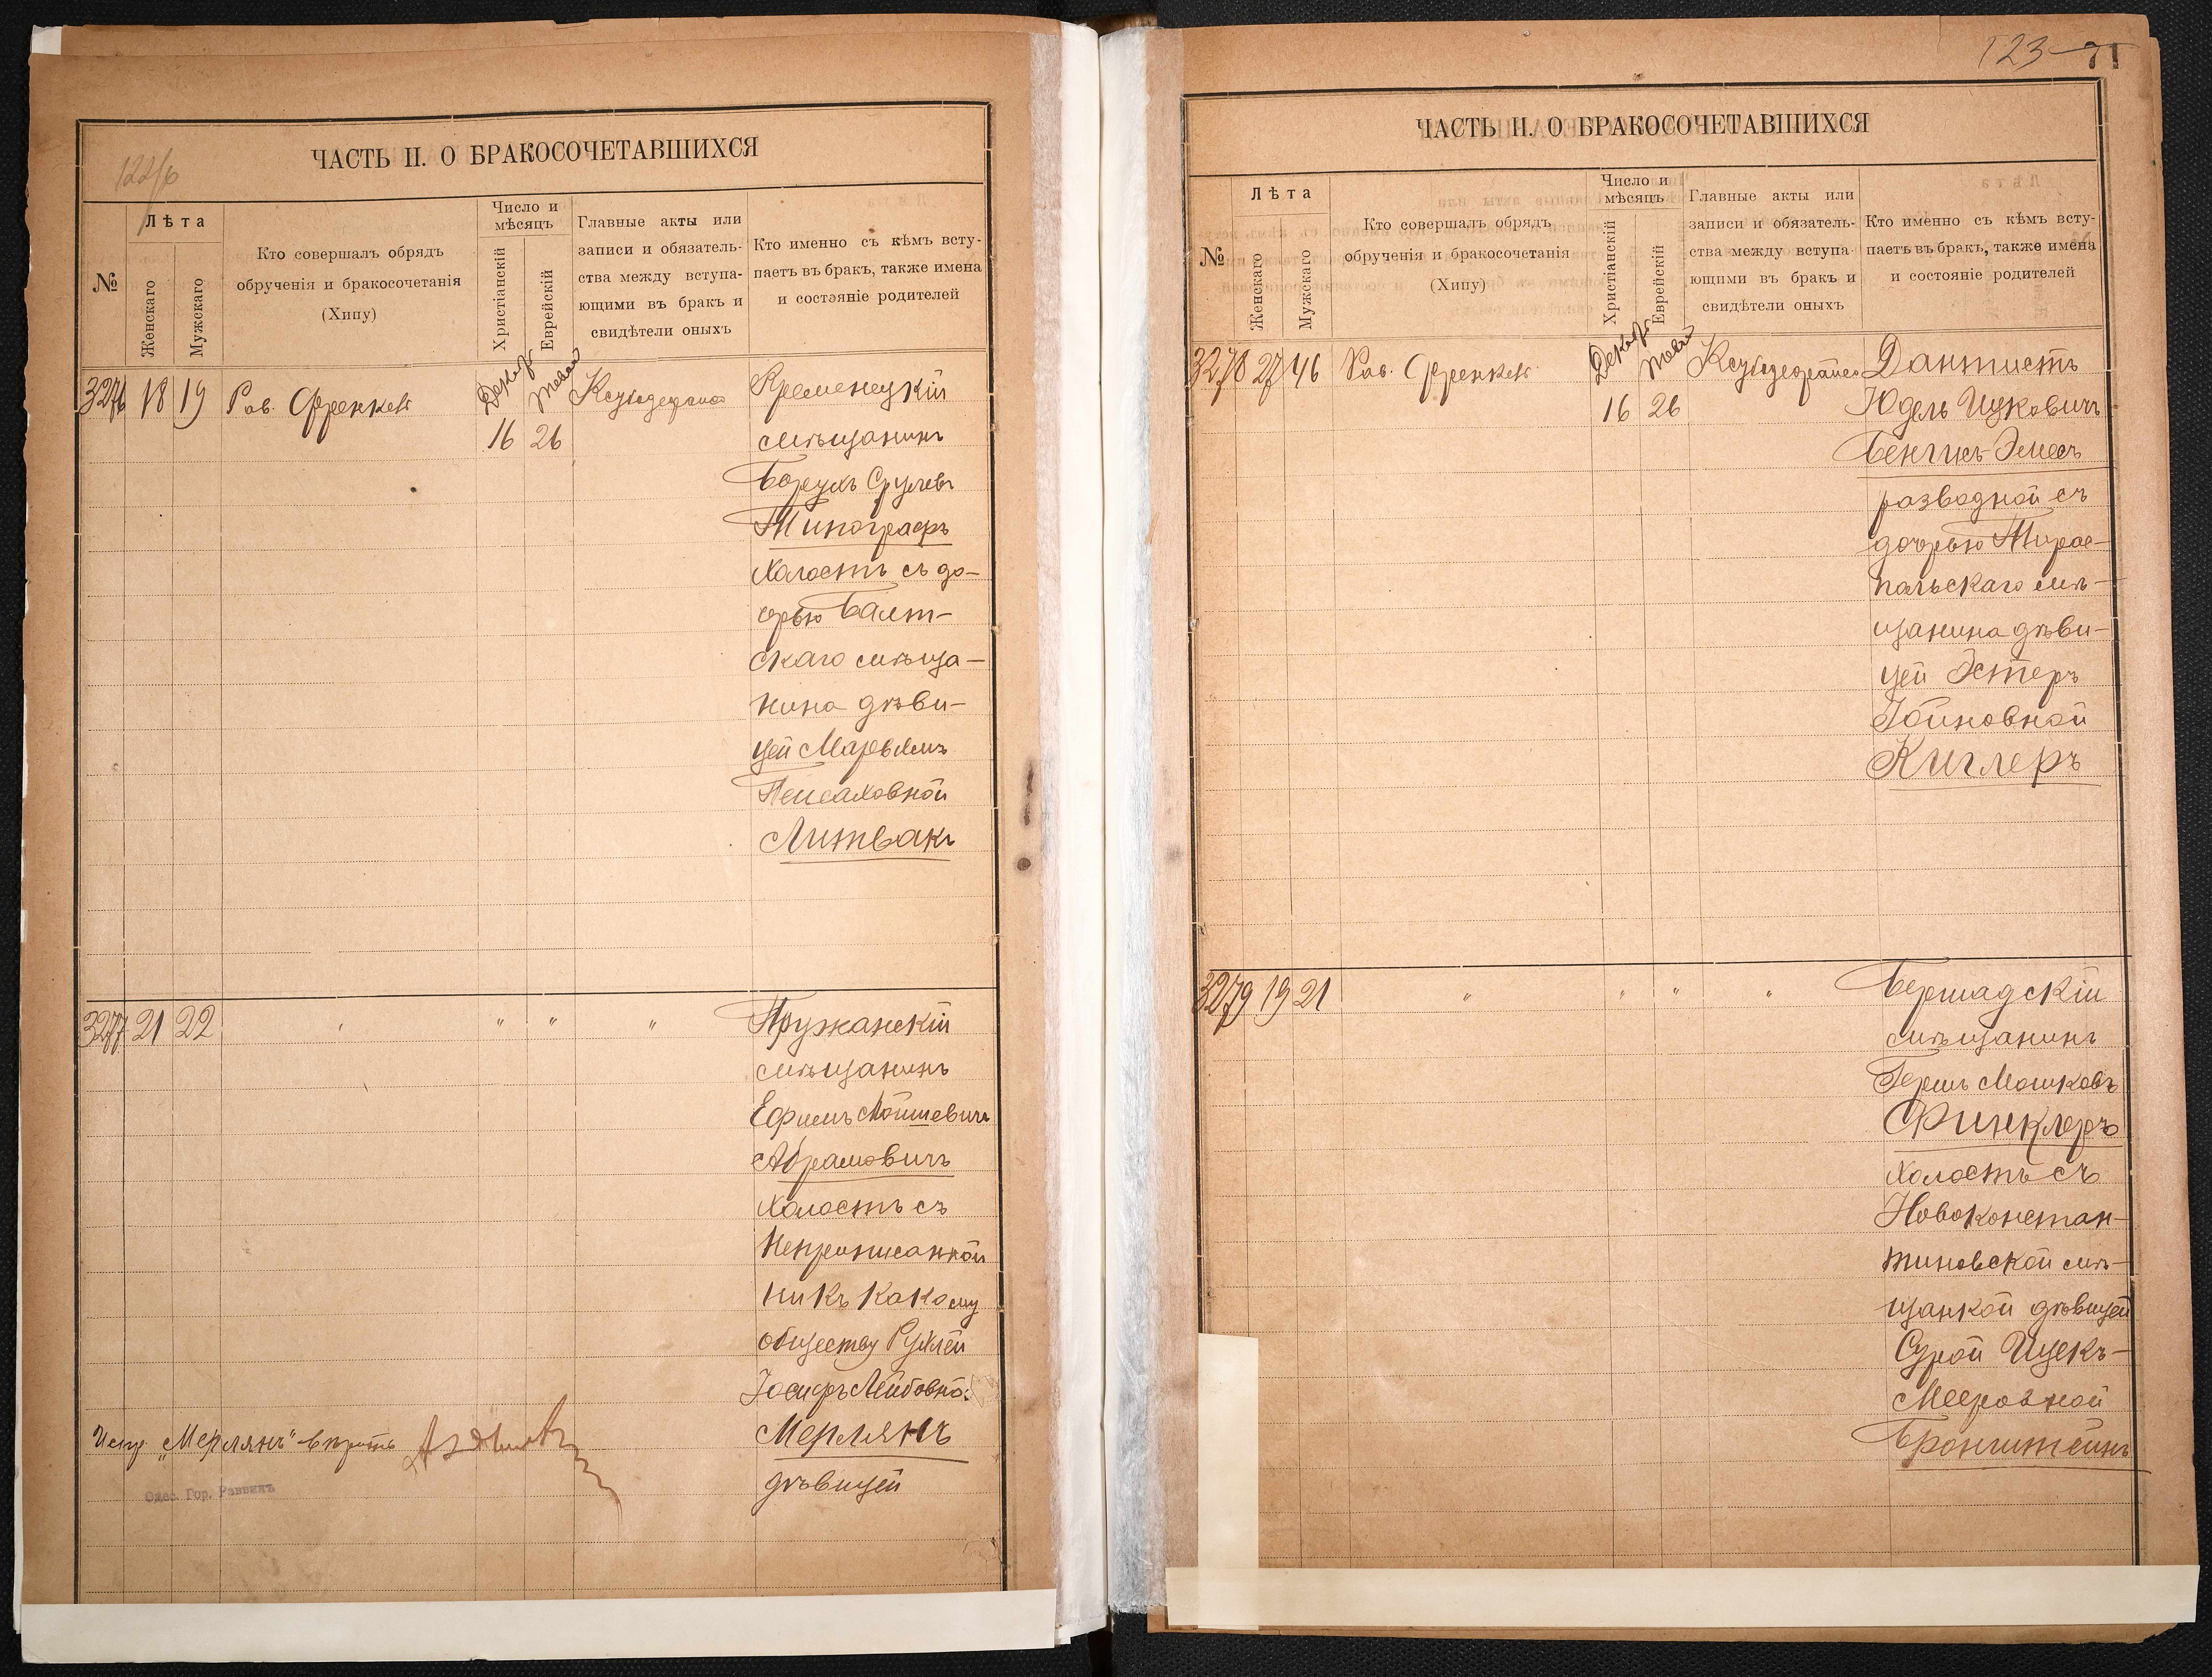 122/б
ЧАСТЬ II. О БРАКОСОЧЕТАВШИХСЯ
№
Лѣта
Женскаго
Мужскаго
Кто совершалъ обрядъ
обрученія и бракосочетанія
(Хипу)
Число и
мѣсяцъ
Христіанскій
Еврейскій
Главные акты или
записи и обязатель-
ства между вступа-
ющими въ бракъ и
свидѣтели оныхъ
Кто именно съ кѣмъ всту-
паетъ въ бракъ, также имена
и состояніе родителей
3276 18 19 Рав. Френкель Декабр Тевес Кременецкій
16 26 мѣщанинъ
Борухъ Срулевъ
Типографъ
холостъ съ до-
черью Балт-
скаго мѣща-
нина дѣви-
цей Марьямъ
Пейсаховной
Литвакъ
3277 21 22 " " " " Пружанскій
мѣщанинъ
Ефимъ Мойшевичъ
Абрамовичъ
холостъ съ
неприписанной
ни къ какому
обществу Рухлей
Іосифъ-Лейбовной
Испр. „Мерлянъ" вѣрить Мерлянъ
дѣвицей
Одес. Гор. Раввинъ
123
71
ЧАСТЬ II. О БРАКОСОЧЕТАВШИХСЯ
№
Лѣта
Женскаго
Мужскаго
Кто совершалъ обрядъ
обрученія и бракосочетанія
(Хипу)
Число и
мѣсяцъ
Христіанскій
Еврейскій
Главные акты или
записи и обязатель-
ства между вступа-
ющими въ бракъ и
свидѣтели оныхъ
Кто именно съ кѣмъ всту-
паетъ въ бракъ, также имена
и состояніе родителей
3278 27 46 Рав. Френкель Декабр Тевес Дантистъ
16 26 Юдель Ицковичъ
Бенгисъ-Эмесъ
разводной съ
дочерью Тирас-
польскаго мѣ-
щанина дѣви-
цей Эстеръ
Іойновной
Киглеръ
3279 19 21 " " " " Бершадскій
мѣщанинъ
Гершъ Мошковъ
Финклеръ
холостъ съ
Новоконстан-
тиновской мѣ-
щанкой дѣвицей
Сурой Ицекъ-
Мееровной
Бронштейнъ